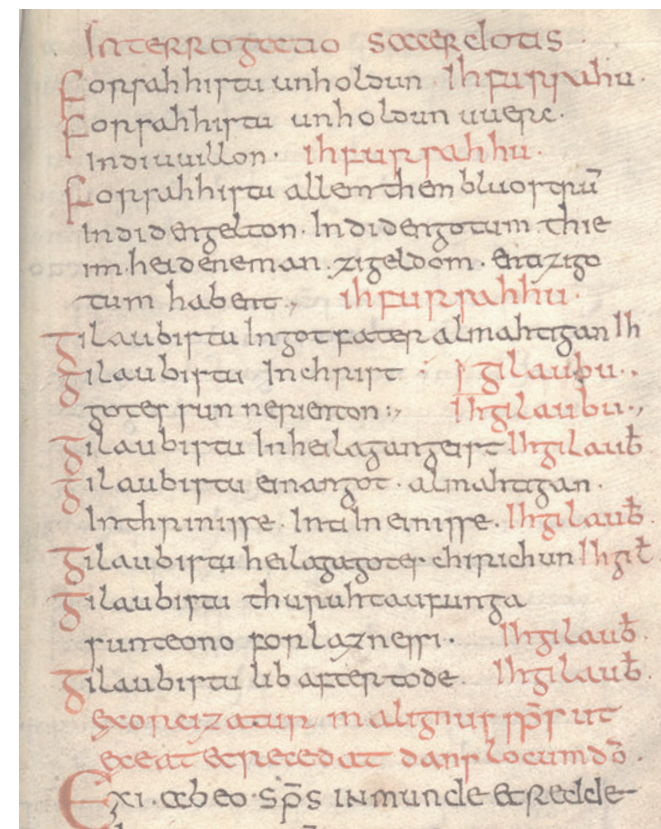 Interrogatio sacerdotis.
Forsahhistu unholdun Ihfursahu.
Forsahhistu unholdun uuerc.
Indiuuillon. ihfursahhu.
Forsahhistu allem then bluostrū
Indidengelton. Indidengotum. thie
im.heideneman. zigeldom. entizigo
tum habent., ihfursahhu.
Gilaubistu Ingotfater almahtigan Ih
Gilaubistu Inchrist gilaubu.,
gotes sun nerienton:, Ihgilaubu.,
Gilaubistu Inheilagangeist Ihgilaub̄
Gilaubistu einangot. almahtigan.
Inthrinisse. Inti In einisse. Ihgilaub̄.
Gilaubistu heilagagotes chirichun Ihgil̄.
Gilaubistu thuruhtaufunga
sunteono forlaznessi. Ihgilaub̄.
Gilaubistu lib aftertode. Ihgilaub̄.
exorcizatur malignus sp̄s ut
exeat etrecedat dans locum dō.
Exi. abeo. sp̄s inmunde etredde